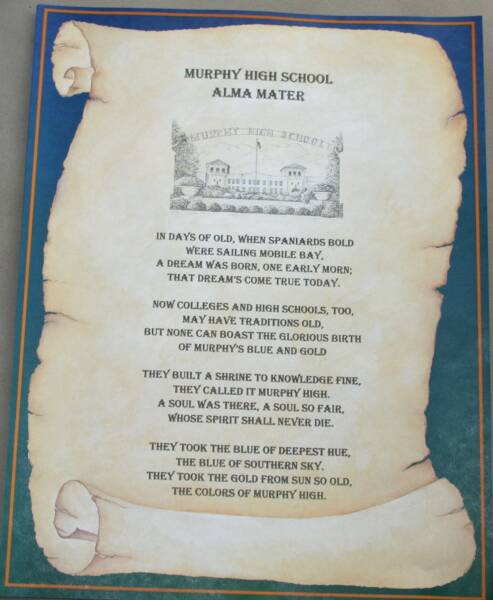 MURPHY HIGH SCHOOL
ALMA MATER
MURPHY HIGH SCHOOL
IN DAYS OF OLD, WHEN SPANIARDS BOLD
WERE SAILING MOBILE BAY,
A DREAM WAS BORN, ONE EARLY MORN;
THAT DREAM'S COME TRUE TODAY.
NOW COLLEGES AND HIGH SCHOOLS, TOO,
MAY HAVE TRADITIONS OLD,
BUT NONE CAN BOAST THE GLORIOUS BIRTH
OF MURPHY'S BLUE AND GOLD
THEY BUILT A SHRINE TO KNOWLEDGE FINE,
THEY CALLED IT MURPHY HIGH.
A SOUL WAS THERE, A SOUL SO FAIR,
WHOSE SPIRIT SHALL NEVER DIE.
THEY TOOK THE BLUE OF DEEPEST HUE,
THE BLUE OF SOUTHERN SKY.
THEY TOOK THE GOLD FROM SUN SO OLD,
THE COLORS OF MURPHY HIGH.